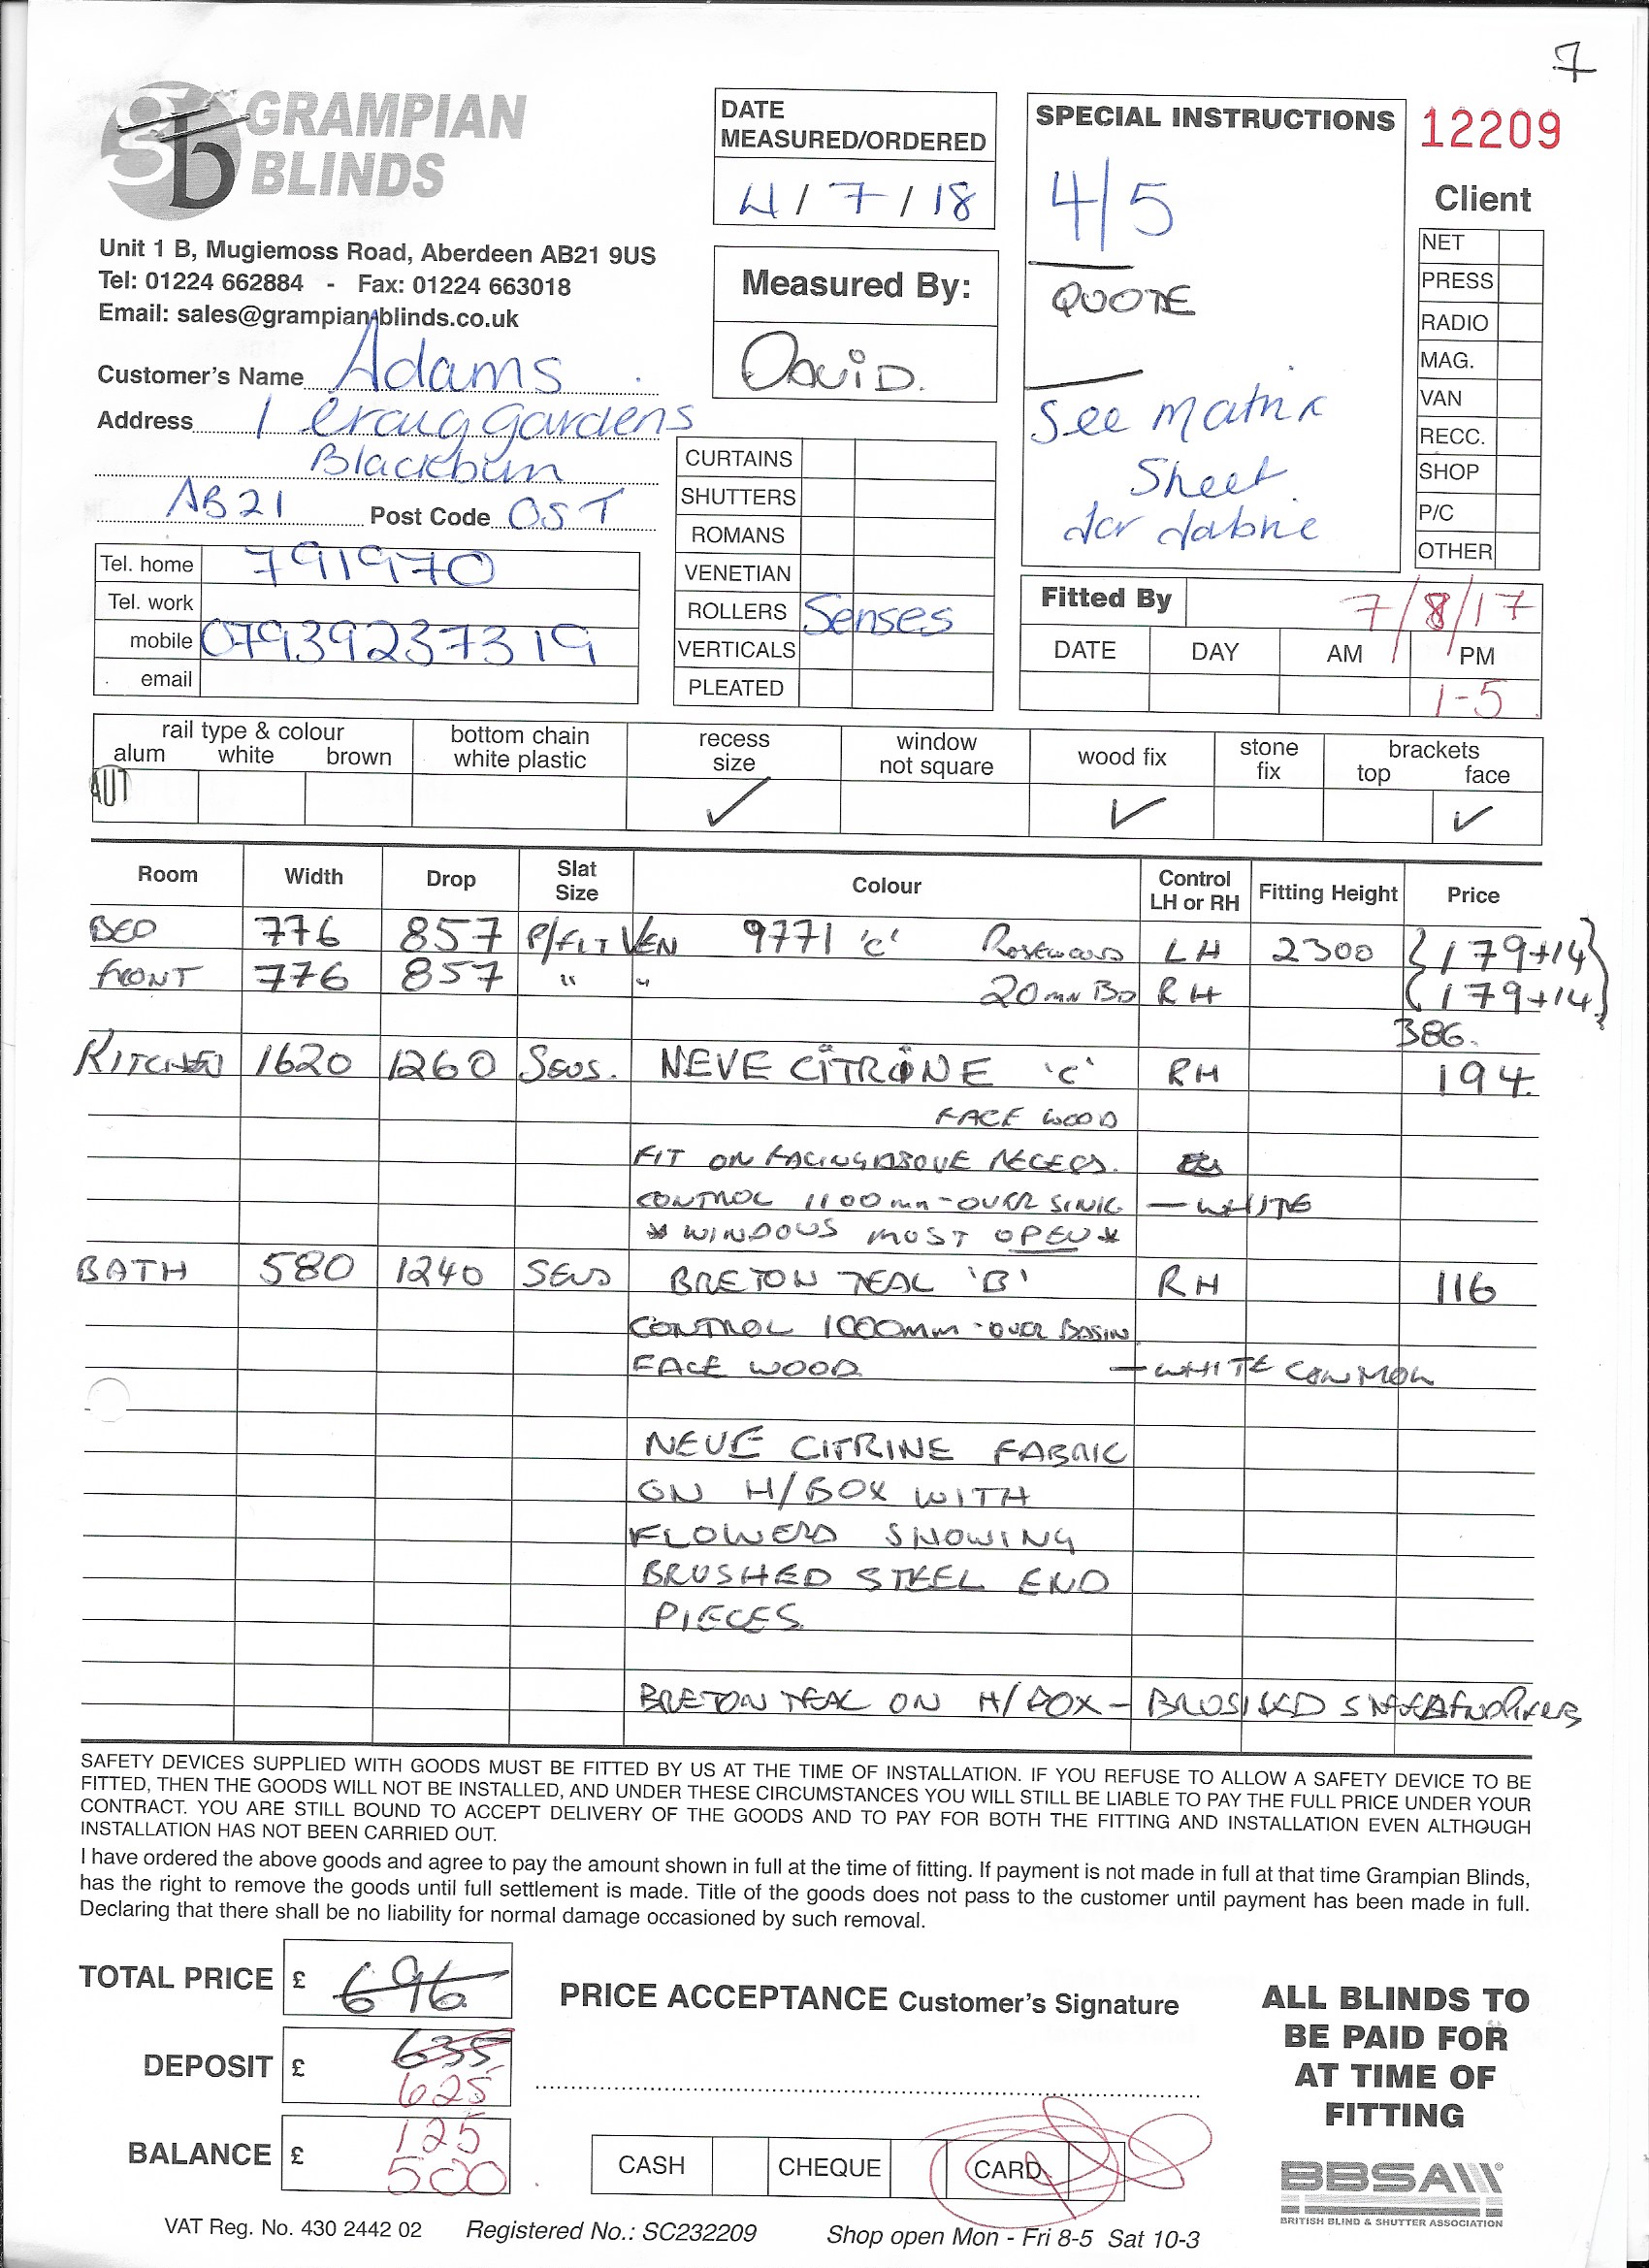 7
GRAMPIAN
BLINDS
Unit 1 B, Mugiemoss Road, Aberdeen AB21 9US
Tel: 01224 662884 - Fax: 01224 663018
Email: sales@grampian-blinds.co.uk
Customer's Name Adams
Address 1 Craig Gardens
Blackburn
AB21 Post Code 0ST
Tel. home 791970
Tel. work
mobile 07939237319
email
DATE
MEASURED/ORDERED
4/7/18
Measured By:
DAVID.
CURTAINS
SHUTTERS
ROMANS
VENETIAN
ROLLERS Senses
VERTICALS
PLEATED
SPECIAL INSTRUCTIONS
4/5
QUOTE
See Matrix
Sheet
for fabric
12209
Client
NET
PRESS
RADIO
MAG.
VAN
RECC.
SHOP
P/C
OTHER
Fitted By 7/8/17
DATE DAY AM PM
1-5
rail type & colour bottom chain recess window wood fix stone brackets
alum white brown white plastic size not square fix top face
AUT ✓ ✓ ✓
Room Width Drop Slat Size Colour Control LH or RH Fitting Height Price
BED 776 857 P/FIT VEN 9771 'C' ROSEWOOD LH 2300 {179+14}
FRONT 776 857 " " 20mm BD RH {179+14}
386.
KITCHEN 1620 1260 SENS. NEVE CITRINE 'C' RH 194.
FACE WOOD
FIT ON FACING ABOVE RECESS.
CONTROL 1100mm - OVER SINK - WHITE
* WINDOWS MOST OPEN *
BATH 580 1240 SENS BRETON TEAL 'B' RH 116
CONTROL 1000mm - OVER BASIN
FACE WOOD - WHITE COMMON
NEVE CITRINE FABRIC
ON H/BOX WITH
FLOWERS SHOWING
BRUSHED STEEL END
PIECES
BRETON TEAL ON H/BOX - BRUSHED STEEL END PIECES
SAFETY DEVICES SUPPLIED WITH GOODS MUST BE FITTED BY US AT THE TIME OF INSTALLATION. IF YOU REFUSE TO ALLOW A SAFETY DEVICE TO BE
FITTED, THEN THE GOODS WILL NOT BE INSTALLED, AND UNDER THESE CIRCUMSTANCES YOU WILL STILL BE LIABLE TO PAY THE FULL PRICE UNDER YOUR
CONTRACT. YOU ARE STILL BOUND TO ACCEPT DELIVERY OF THE GOODS AND TO PAY FOR BOTH THE FITTING AND INSTALLATION EVEN ALTHOUGH
INSTALLATION HAS NOT BEEN CARRIED OUT.
I have ordered the above goods and agree to pay the amount shown in full at the time of fitting. If payment is not made in full at that time Grampian Blinds,
has the right to remove the goods until full settlement is made. Title of the goods does not pass to the customer until payment has been made in full.
Declaring that there shall be no liability for normal damage occasioned by such removal.
TOTAL PRICE £ 696
DEPOSIT £ 635
625
BALANCE £ 125
500
PRICE ACCEPTANCE Customer's Signature
CASH CHEQUE CARD
ALL BLINDS TO
BE PAID FOR
AT TIME OF
FITTING
BBSA
BRITISH BLIND & SHUTTER ASSOCIATION
VAT Reg. No. 430 2442 02 Registered No.: SC232209 Shop open Mon - Fri 8-5 Sat 10-3